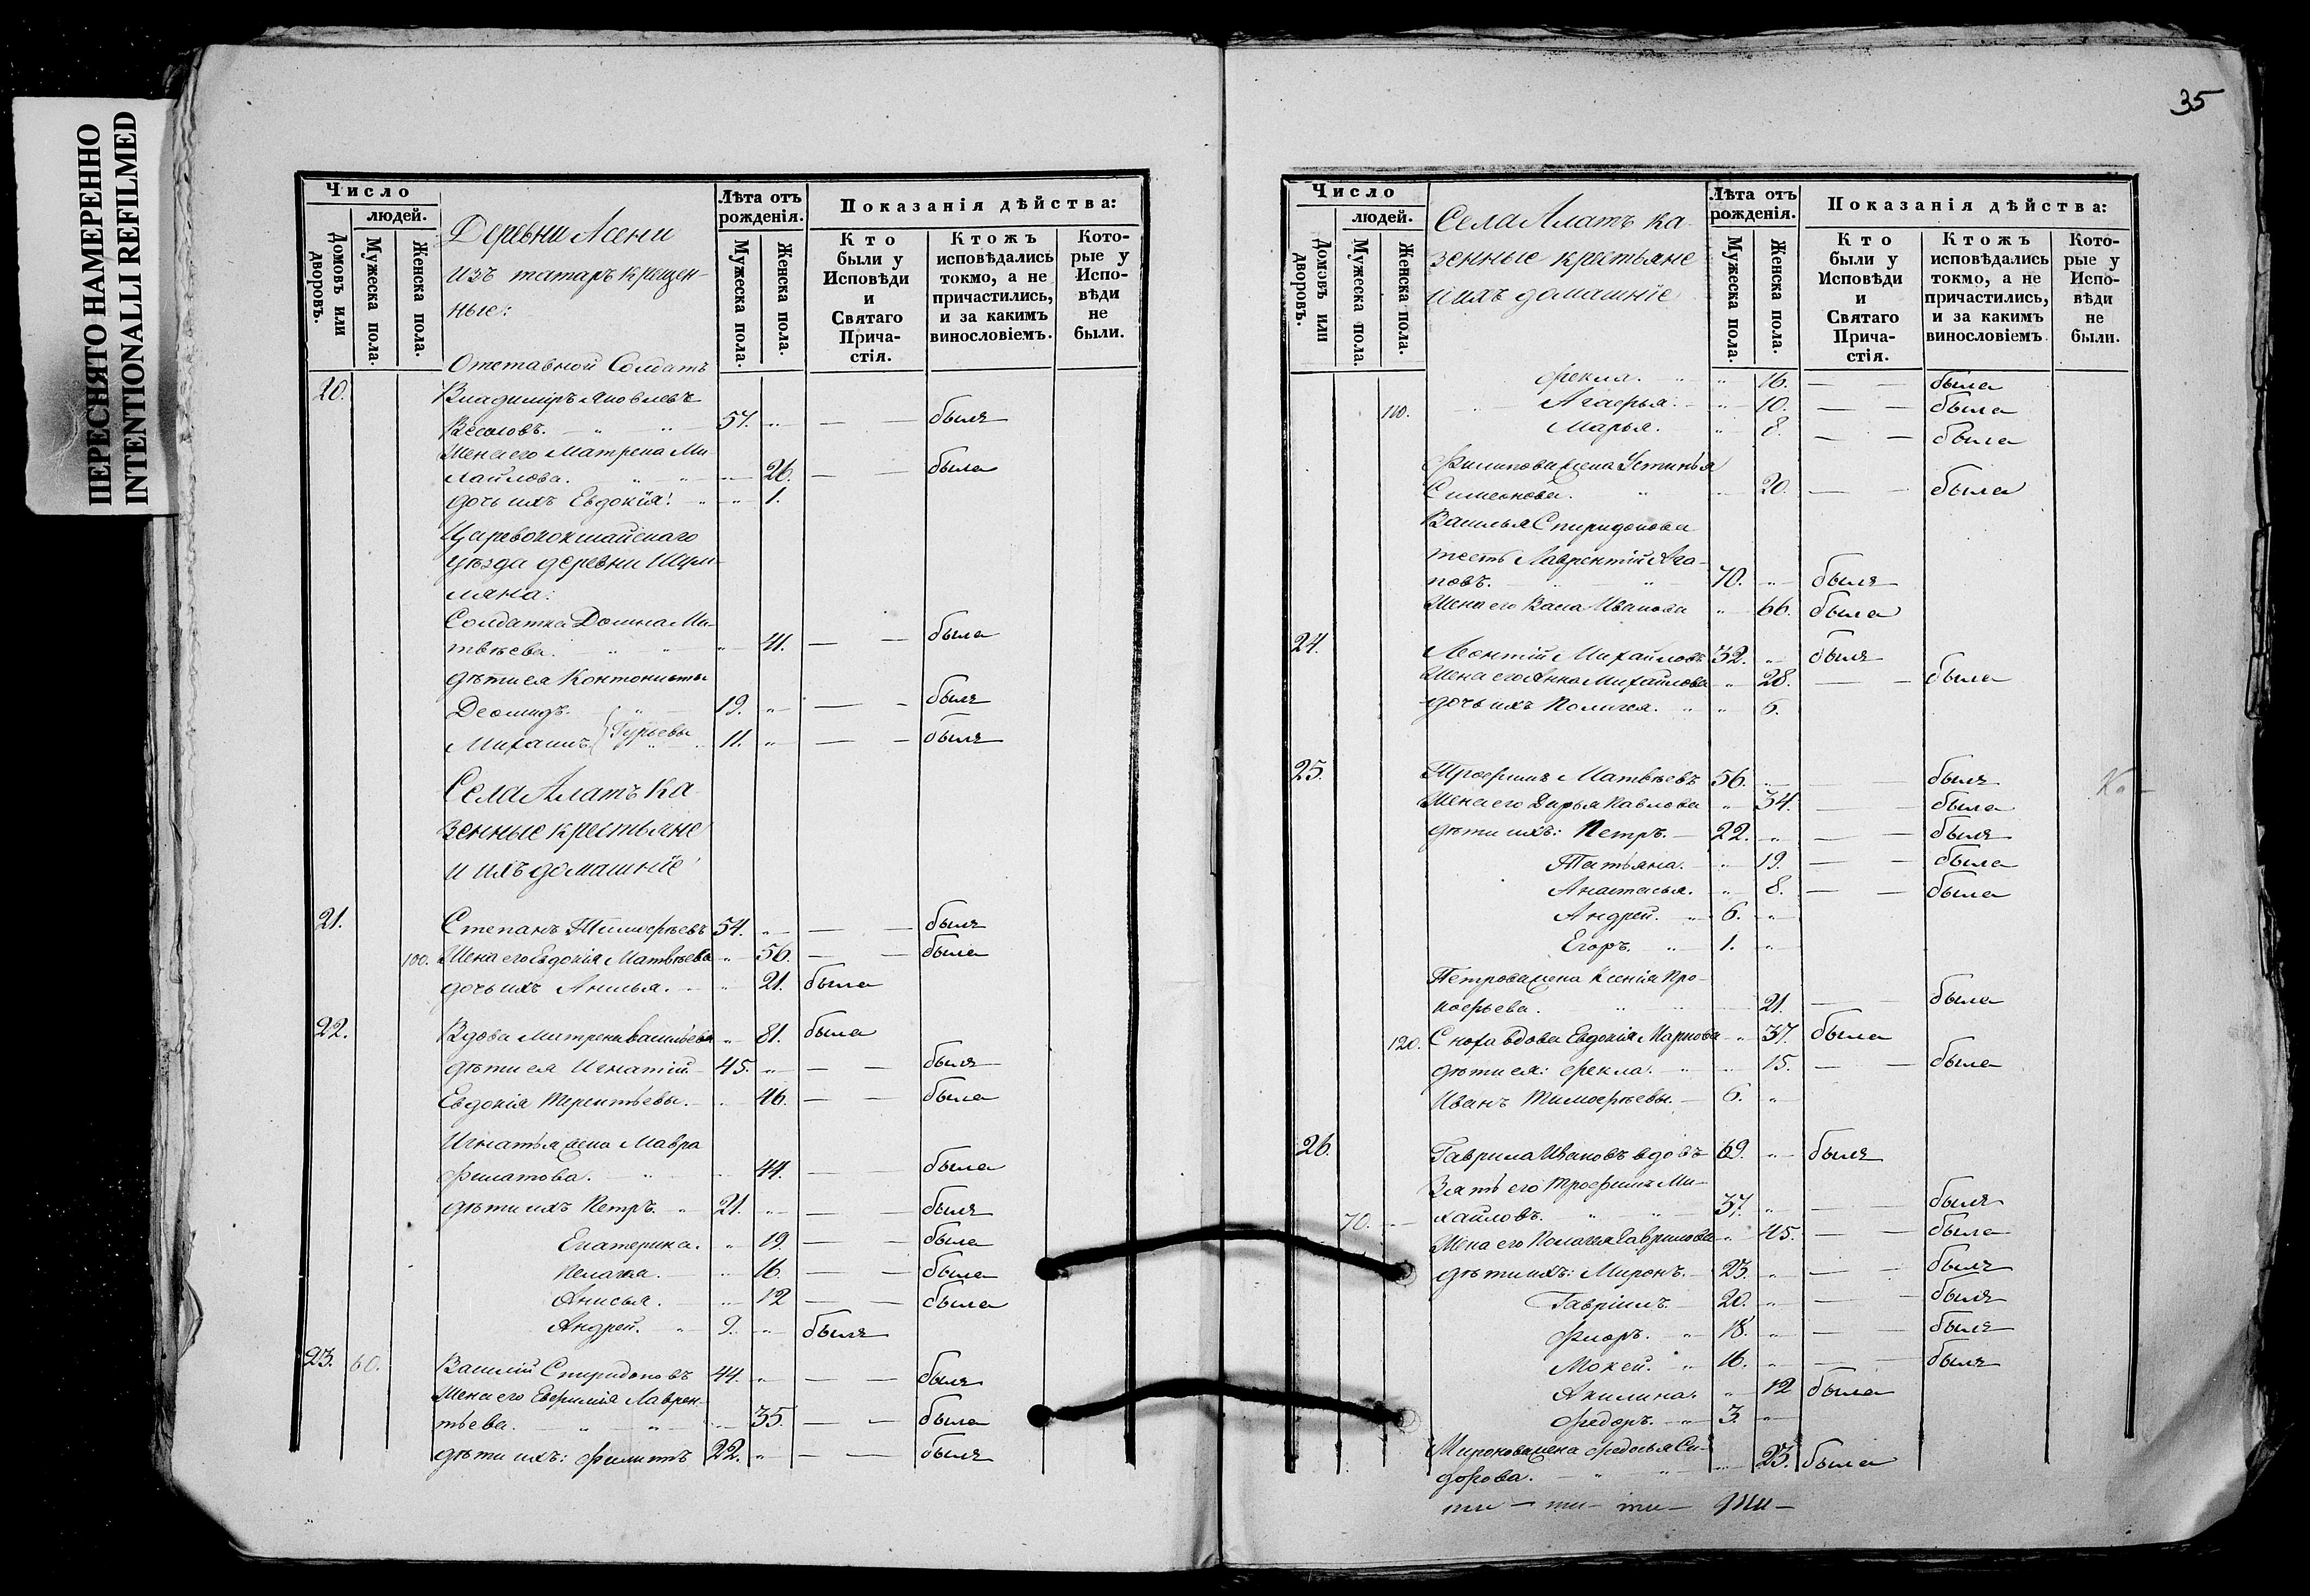 ПЕРЕСНЯТО НАМЕРЕННО
INTENTIONALLI REFILMED
Число
людей.
Домовъ или дворовъ.
Мужеска пола.
Женска пола.
Деревни Ясени
изъ татаръ крещен-
ные:
Лѣта отъ рожденія.
Мужеска пола.
Женска пола.
Показанія дѣйства:
Кто были у Исповѣди и Святаго Прича-стія.
Ктожъ исповѣдались токмо, а не причастились, и за какимъ винословіемъ.
Кото-рые у Испо-вѣди не были.
Отставной Солдатъ
20. Владиміръ Яковлевъ
57. „ — — былъ
Жена его Матрена Ми-
хайлова. „ 26. — — была
дочь ихъ Евдокія. „ 1.
Царевококшайскаго
уѣзда деревни
Солдатка Домна Ма-
твѣева. „ 41. — — была
дѣти ея Кантонисты
19. „ — — былъ
Михаилъ } Гурьевы 11. „ — — былъ
Села Алатъ ка
зенные крестьяне
и ихъ домашніе
21. Степанъ Тимофѣевъ 54. „ — — былъ
100. Жена его Евдокія Матвѣева „ 56. — — была
дочь ихъ Анисья. „ 21. была
22. Вдова Матрена Васильева „ 81. была
дѣти ея Игнатій 45. „ — — былъ
Евдокія Терентьевы. „ 46. — — была
Игнатья жена Мавра
Филатова. „ 44. — — была
дѣти ихъ Петръ. 21. „ — — былъ
Екатерина. „ 19. — — была
Пелагея. „ 16. — — была
Анисья. „ 12 — — была
Андрей. 9. „ былъ
23. 60. Василій Спиридоновъ 44. „ — — былъ
Жена его Евфимія Лаврен-
тьева. „ 35. — — была
дѣти ихъ: Филиппъ 22. „ — — былъ
35
Число
людей.
Домовъ или дворовъ.
Мужеска пола.
Женска пола.
Села Алатъ ка
зенные крестьяне
и ихъ домашніе
Лѣта отъ рожденія.
Мужеска пола.
Женска пола.
Показанія дѣйства:
Кто были у Исповѣди и Святаго Прича-стія.
Ктожъ исповѣдались токмо, а не причастились, и за какимъ винословіемъ.
Кото-рые у Испо-вѣди не были.
Фекла. „ 16. — — была
110. Агафья. „ 10. — — была
Марья. „ 8. — — была
Филиппова жена Устинья
Симеонова. „ 20. — — была
Василья Спиридонова
тесть Лаврентій Ага-
повъ. 70. „ былъ
Жена его Васа Иванова „ 66. была
24. Леонтій Михайловъ 32. „ былъ
Жена его Анна Михайлова „ 28. — — была
дочь ихъ Пелагея. „ 6.
25. Трофимъ Матвѣевъ 56. „ — былъ
Жена его Дарья Павлова „ 54. — была
дѣти ихъ: Петръ. 22. „ — — былъ
Татьяна. „ 19. — — была
Анастасья. „ 8. — — была
Андрей. 6. „
Егоръ. 1. „
Петрова жена Ксенія Про-
кофьева. 21. — — была
120. Сноха вдова Евдокія Маркова „ 37. была
дѣти ея: Фекла. „ 15. — — была
Иванъ Тимофѣевы. 6. „
26. Гаврила Ивановъ вдовъ 69. „ былъ
Зять его Трофимъ Ми-
70. хайловъ. 37. „ — — былъ
Жена его Пелагея Гаврилова „ 45. — — была
дѣти ихъ: Миронъ. 23. „ — — былъ
Гавріилъ. 20. „ — — былъ
Флоръ. 18. „ — — былъ
Мокей. 16. „ — — былъ
Акилина. „ 12 была
Федоръ. 3. „
Миронова жена Федосья Си-
дорова. „ 23. была